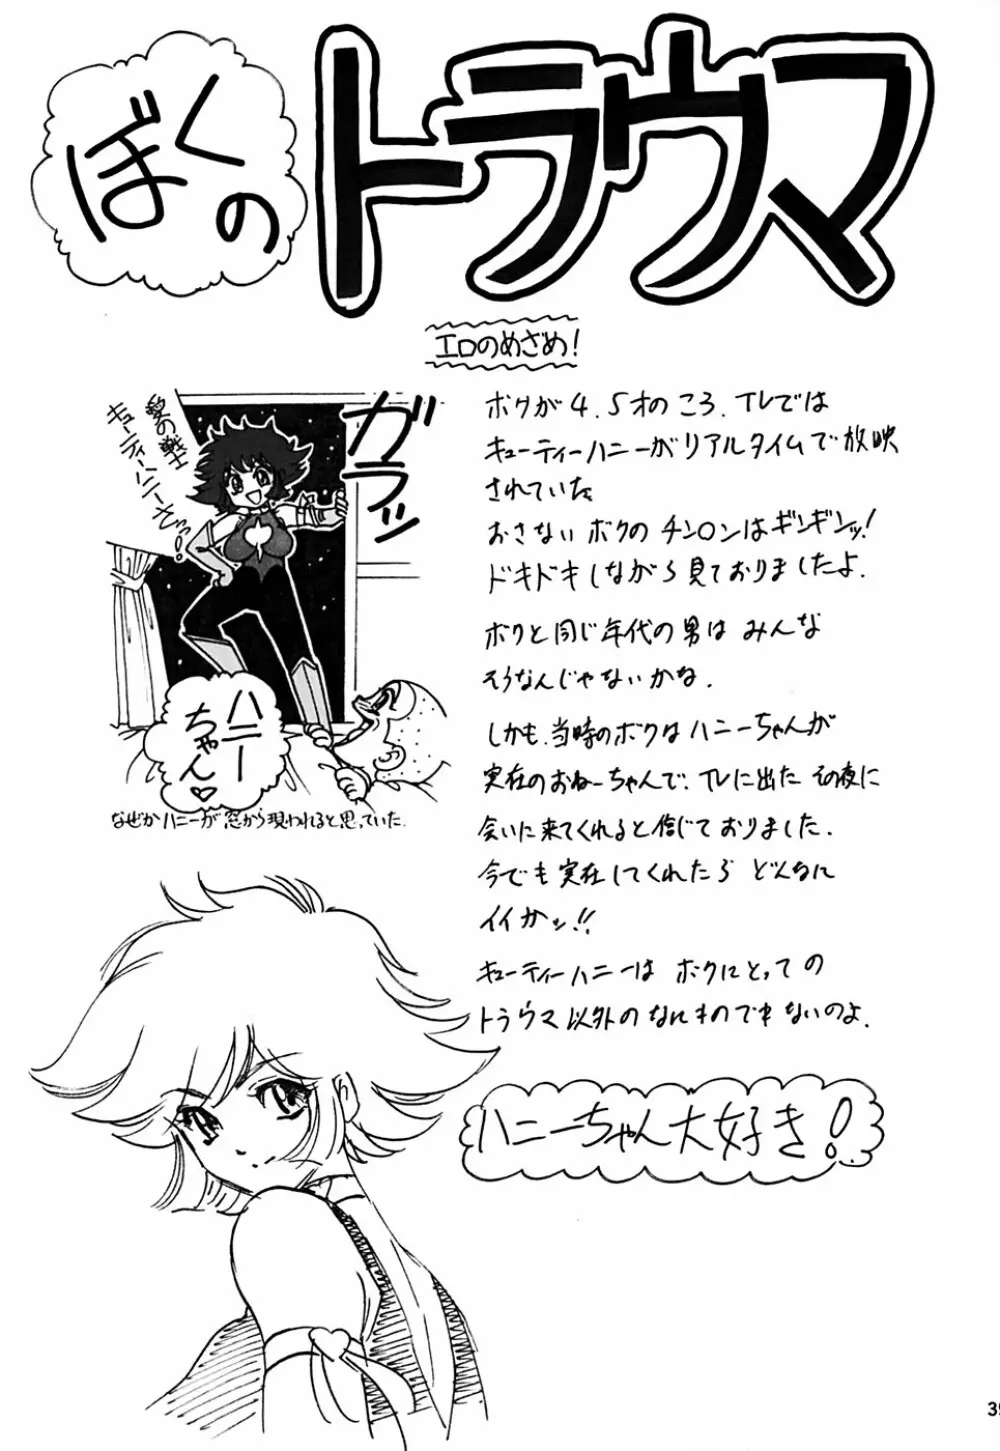 ぼくの
トラウマ
エロのめざめ!
愛の戦士
キューティーハニーさっ!
ガラッ
ハニーちゃん♡
なぜかハニーが窓から現われると思っていた.
ボクが4.5才のころ.TVでは
キューティーハニーがリアルタイムで放映
されていた
おさないボクのチン○ンはギンギンッ!
ドキドキしながら見ておりましたよ.
ボクと同じ年代の男はみんな
そうなんじゃないかな.
しかも.当時のボクはハニーちゃんが
実在のおねーちゃんで.TVに出たその夜に
会いに来てくれると信じておりました.
今でも実在してくれたらどんなに
イイかッ!!
キューティーハニーはボクにとっての
トラウマ以外のなにものでもないのよ.
ハニーちゃん大好き!